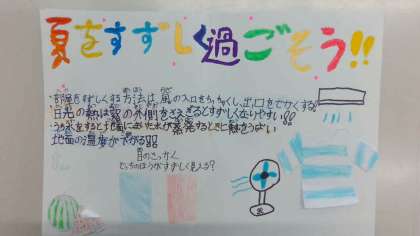 夏をすずしく過ごそう!!
・部屋をすずしくする方法は、風の入口をちいさくし、出口をでかくする!!
・日光の熱は窓の外側をさえぎるとすずしくなりやすい!!
・うち水をすると地面にまいた水が蒸発するときに熱をうばい
地面の温度が下がる!!
色のさっかく
どっちのほうがすずしく見える?